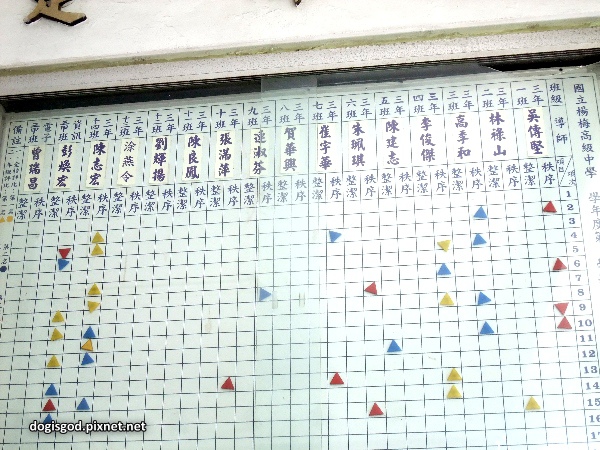 國立楊梅高級中學
班級 導師
三年一班 吳傳堅 秩序 整潔
三年二班 林祿山 秩序 整潔
三年三班 高季和 秩序 整潔
三年四班 李俊傑 秩序 整潔
三年五班 陳建志 秩序 整潔
三年六班 朱珮琪 秩序 整潔
三年七班 崔宇華 秩序 整潔
三年八班 賀華興 秩序 整潔
三年九班 淑芬 秩序 整潔
三年十班 張滿萍 秩序 整潔
三年十一班 陳良鳳 秩序 整潔
三年十二班 劉輝揚 秩序 整潔
三年十三班 涂燕令 秩序 整潔
三年十四班 陳志宏 秩序 整潔
資訊 彭煥宏 秩序 整潔
電子 曾瑞昌 秩序 整潔
備註
1
2
3
4
5
6
7
8
9
10
11
12
13
14
15
16
17
dogisgod.pixnet.net